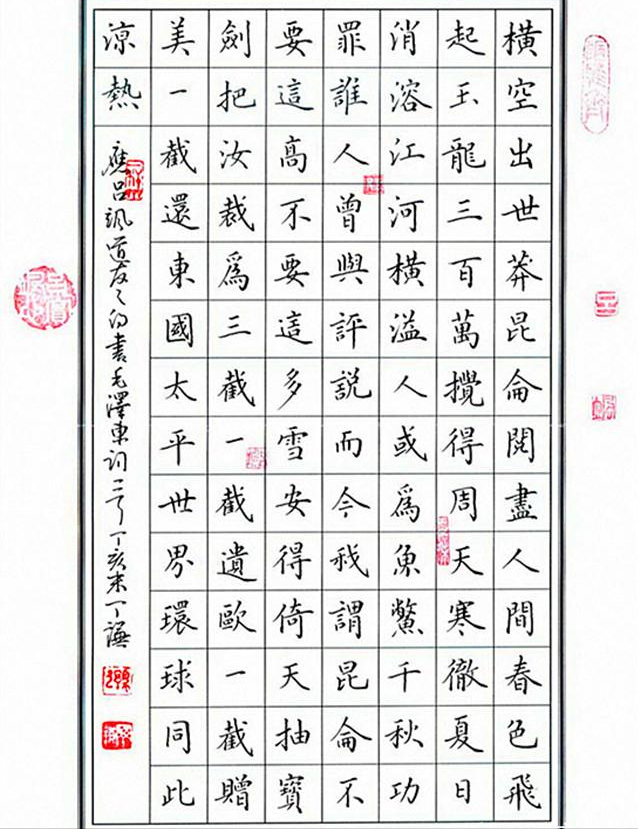 橫空出世莽昆侖閱盡人間春色飛
起玉龍三百萬攪得周天寒徹夏日
消溶江河橫溢人或爲魚鱉千秋功
罪誰人曾與評説而今我謂昆侖不
要這高不要這多雪安得倚天抽寶
劍把汝裁爲三截一截遺歐一截贈
美一截還東國太平世界環球同此
涼熱
應呂颯道友之書毛澤東詞二丁亥末丁謙